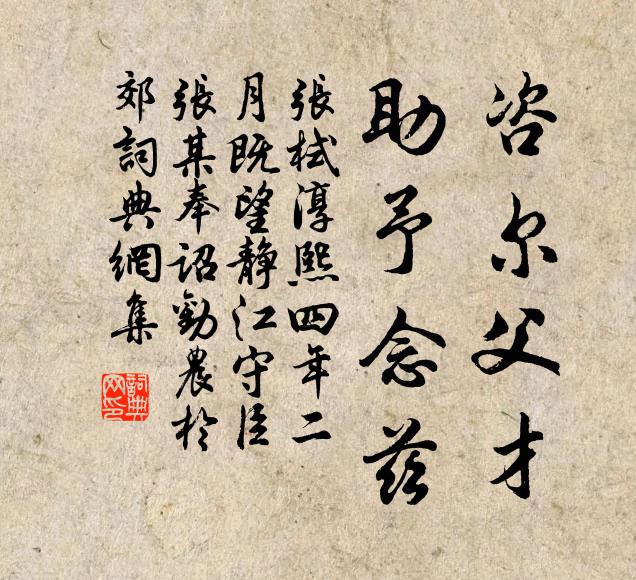 咨尔父才
助予念兹
張栻淳熙四年二
月既望静江守臣
張某奉詔勸農於
郊詞典網集
詞典
网印